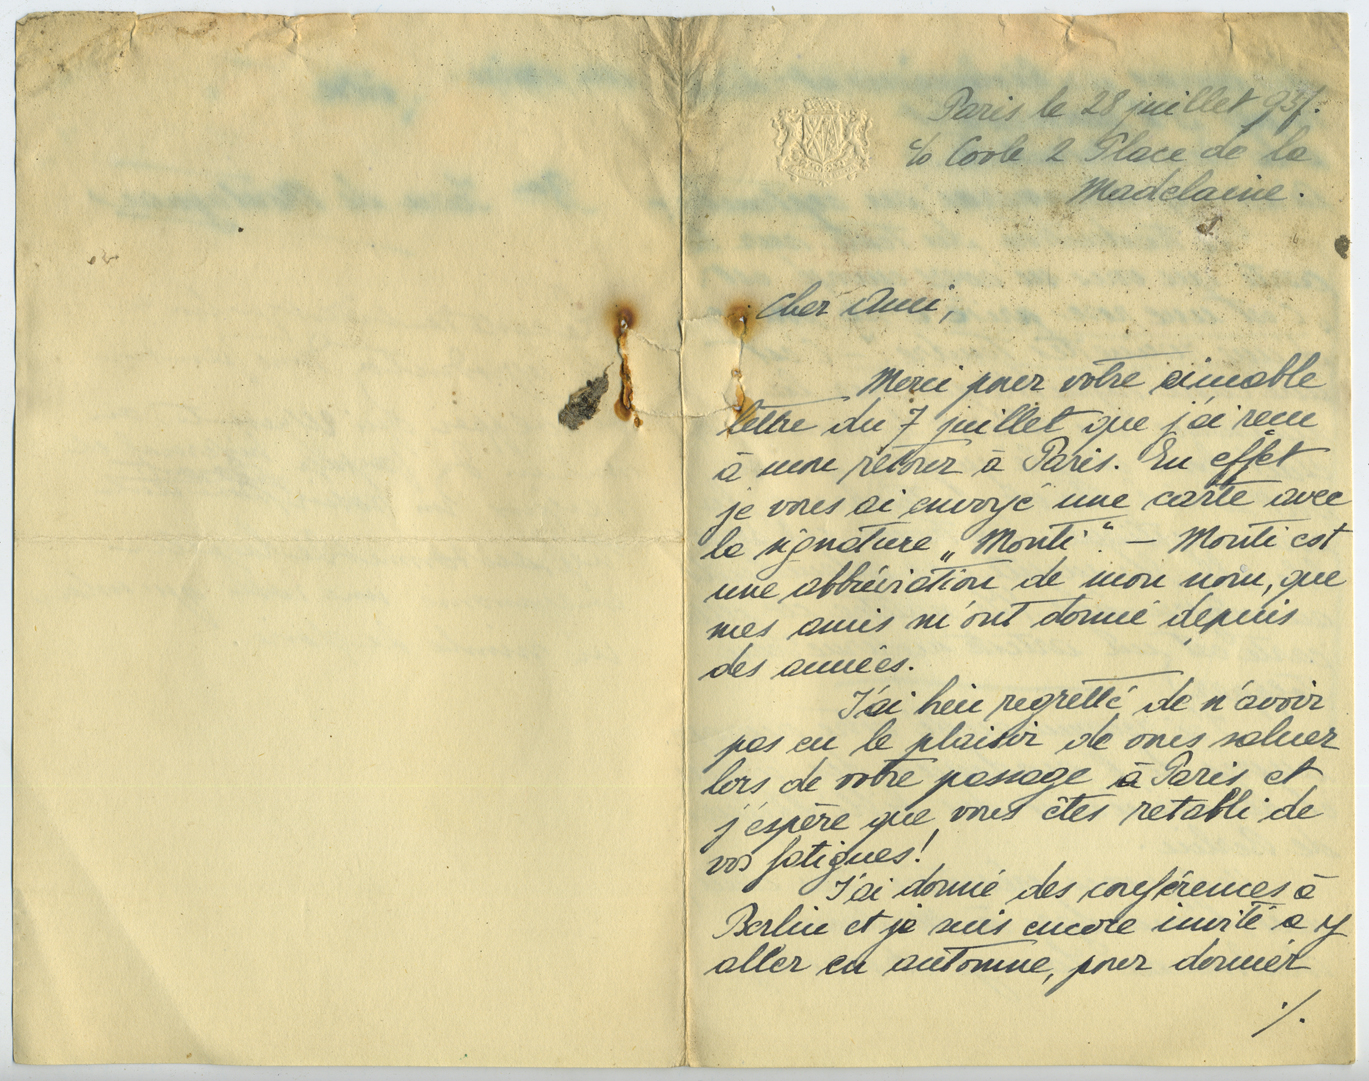 Paris le 28 juillet 937.
c/o Cook 2 Place de la
Madelaine.
Cher Ami,
Merci pour votre aimable
lettre du 7 juillet que j'ai recu
à mon retour à Paris. En effet
je vous ai envoyé une carte avec
la signature „Monti". — Monti est
une abbréviation de mon nom, que
mes amis m'ont donné depuis
des années.
J'ai bien regretté de n'avoir
pas eu le plaisir de vous saluer
lors de votre passage à Paris et
j'espère que vous êtes retabli de
vos fatigues!
J'ai donné des conférences à
Berlin et je suis encore invité a y
aller en automne, pour donner
./.